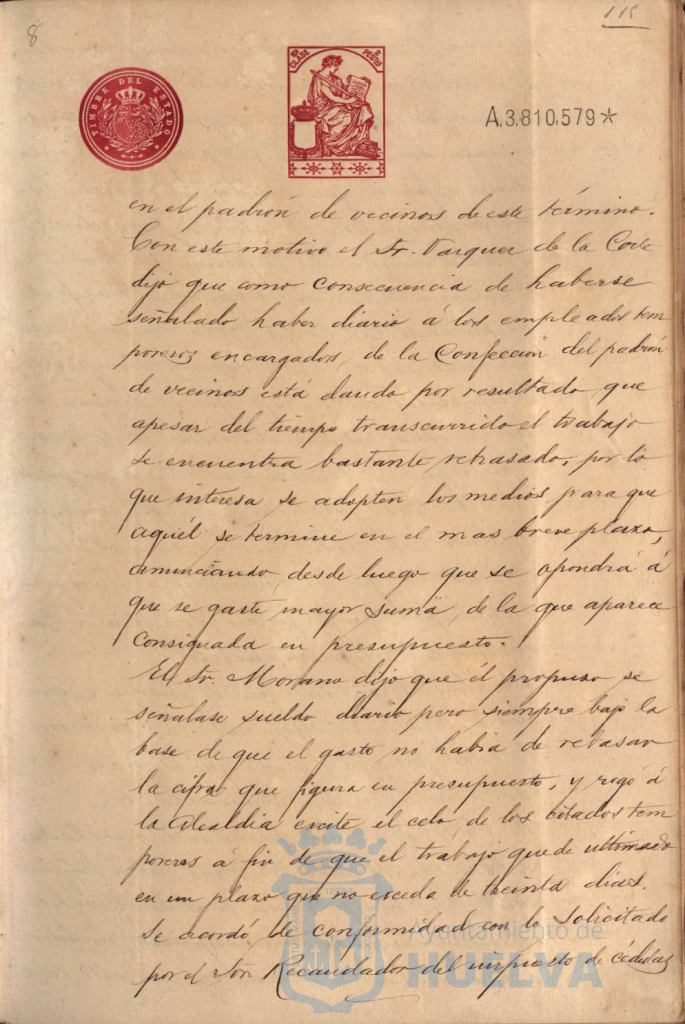 8
115
TIMBRE DEL ESTADO
CLASE
PESETAS
A.3.810.579*
en el padrón de vecinos de este término.
Con este motivo el Sr. Vazquez de la Corte
dijo que como consecuencia de haberse
señalado haber diario á los empleados tem
poreros encargados de la Confección del padrón
de vecinos está dando por resultado que
apesar del tiempo transcurrido el trabajo
se encuentra bastante retrasado, por lo
que interesa se adopten los medios para que
aquél se termine en el mas breve plazo,
anunciando desde luego que se opondrá á
que se gaste mayor suma de la que aparece
consignada en presupuesto.
El Sr. Morano dijo que él propuso se
señalase sueldo diario pero siempre bajo la
base de que el gasto no habia de rebasar
la cifra que figura en presupuesto, y rogó á
la Alcaldia excite el celo de los citados tem
poreros á fin de que el trabajo quede ultimado
en un plazo que no exceda de treinta dias.
Se acordó de conformidad con lo solicitado
por el Sor. Recaudador del impuesto de cédulas
Ayuntamiento de
HUELVA